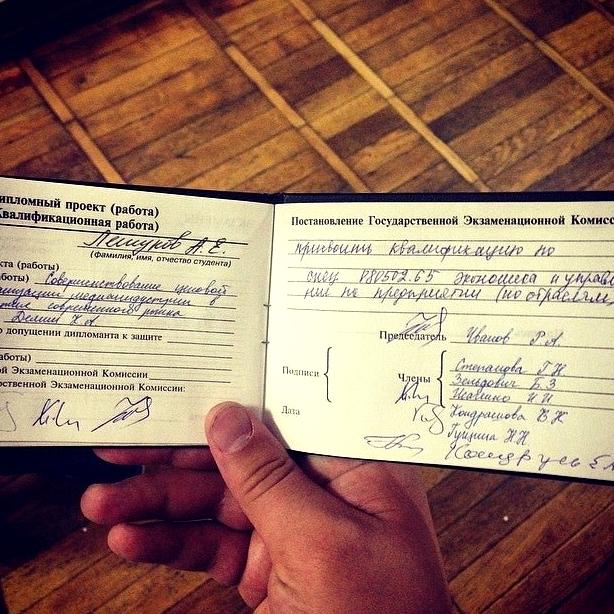 ипломный проект (работа)
Квалификационная работа)
Лешуков А. Е.
(фамилия, имя, отчество студента)
кта (работы)
боты) Совершенствование ценовой
медиаиндустрии
современного рынка
Демин
о допущении дипломанта к защите
аботы)
ой Экзаменационной Комиссии
рственной Экзаменационной Комиссии:
Постановление Государственной Экзаменационной Комисс
присвоить квалификацию по
спец 080502.65 экономика и управл
ние на предприятии (по отраслям)
Председатель Иванов Р.А.
Подписи
Члены
Степанова Г Н
Зенькович Б.З
И И
Дата
Кондрашова В К
Гущина Н Н